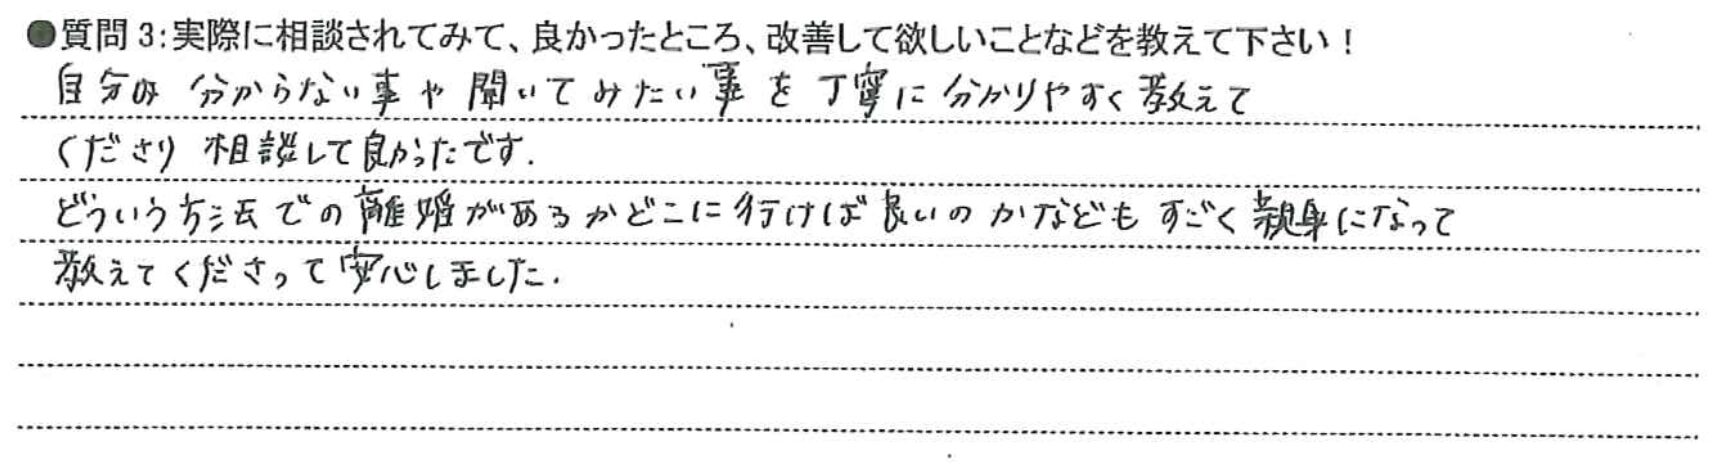 ●質問3:実際に相談されてみて、良かったところ、改善して欲しいことなどを教えて下さい!
自分の分からない事や聞いてみたい事を丁寧に分かりやすく教えて
くださり相談して良かったです.
どういう方法での離婚があるかどこに行けば良いのかなどもすごく親身になって
教えてくださって安心しました.